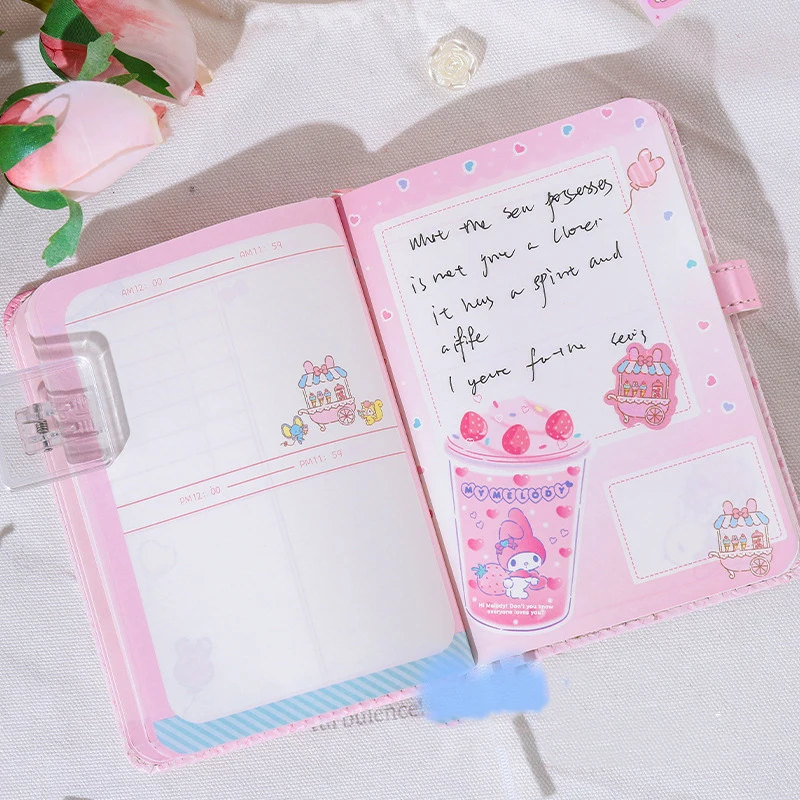 AM12: 00 AM11: 59
PM12: 00 PM11: 59
what the sea possesses
is not
it has a and
a life
I for the
MY MELODY
Hi Melody! Don't you know
everyone loves you?
turbulence